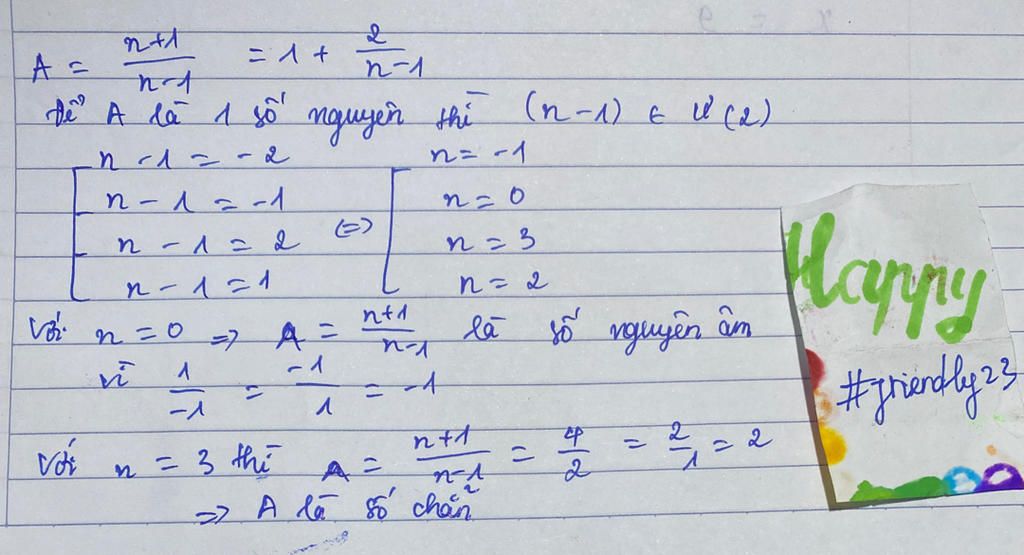 A = n+1/n-1 = 1 + 2/n-1
Để A là 1 số nguyên thì (n-1) ∈ Ư(2)
n - 1 = - 2 n = -1
n - 1 = -1 n = 0
n - 1 = 2 <=> n = 3
n - 1 = 1 n = 2
Với n = 0 => A = n+1/n-1 là số nguyên âm
vì 1/-1 = -1/1 = -1
Với n = 3 thì A = n+1/n-1 = 4/2 = 2/1 = 2
=> A là số chẵn
Happy
#friendly23